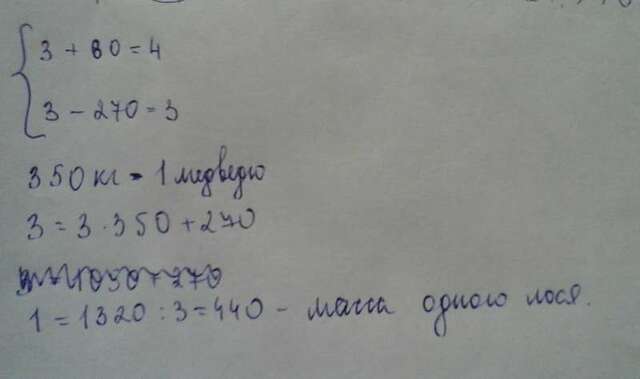 3 + 80 = 4
3 - 270 = 3
350 кг - 1 медведю
3 = 3 · 350 + 270
1 = 1320 : 3 = 440 - масса одного лося.